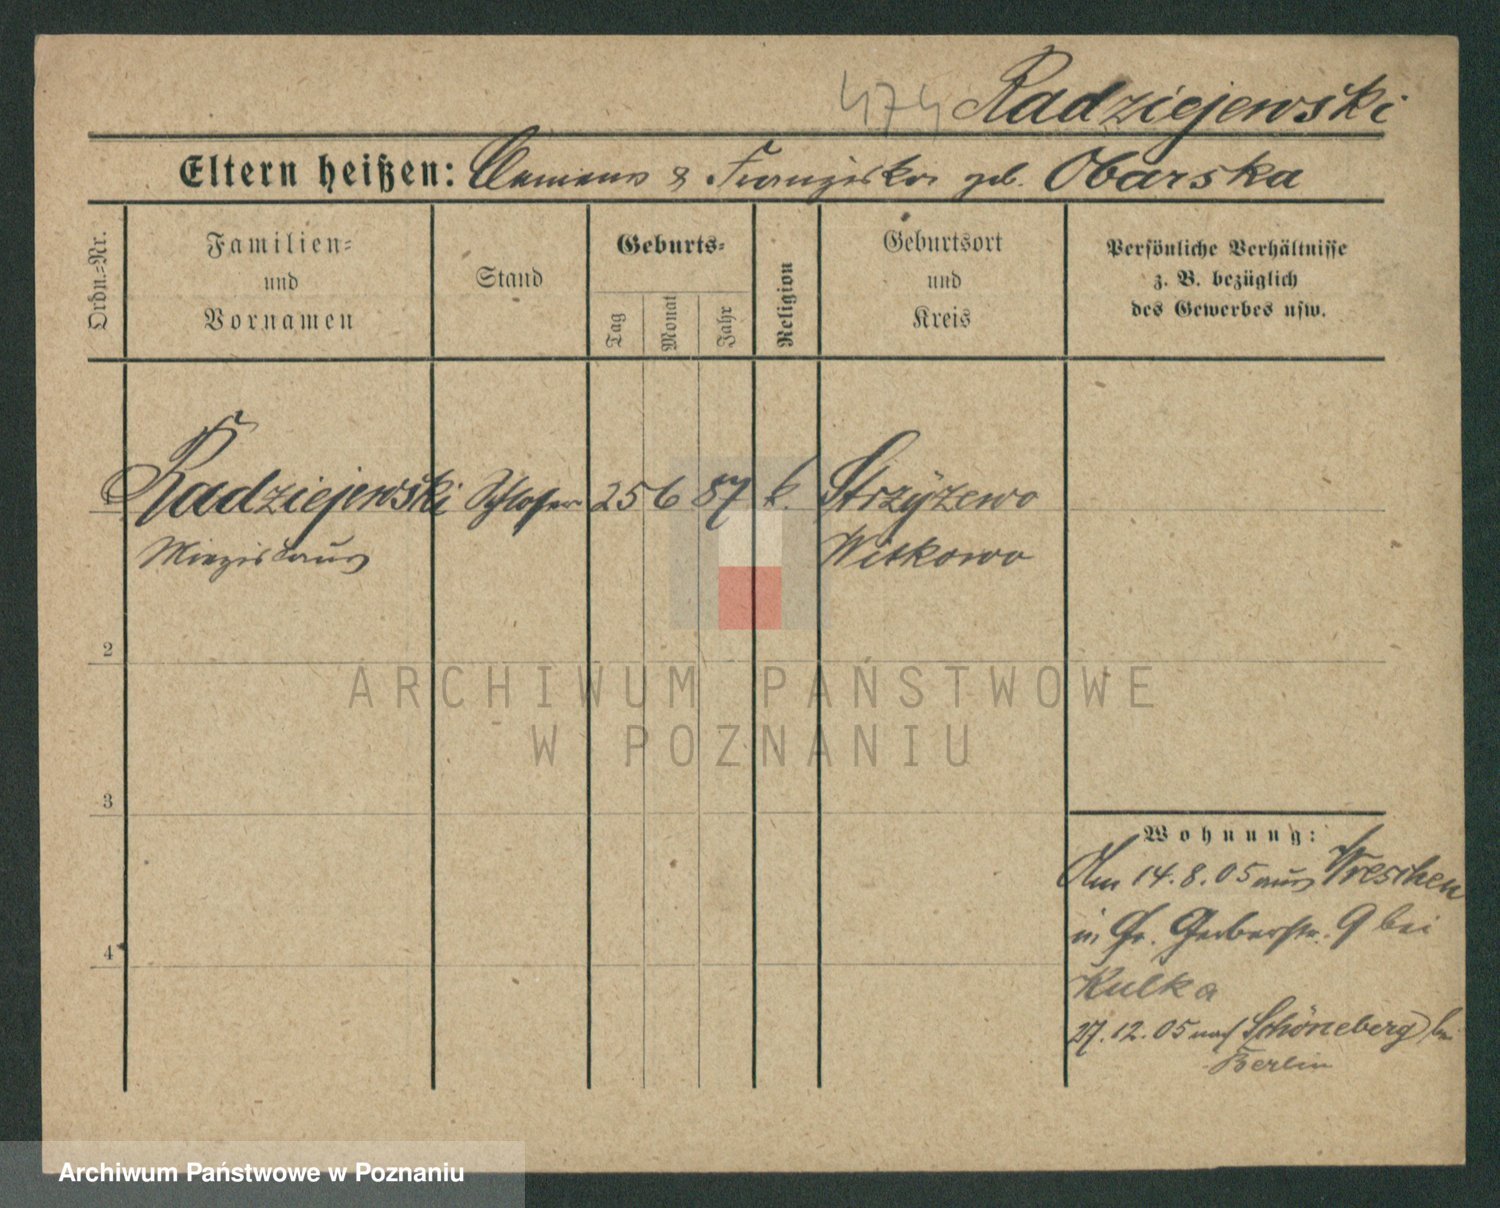 474 Radziejewski
Eltern heißen: Clemens & Franziska geb. Obarska
Ordn.=Nr.
Familien=
und
Vornamen
Stand
Geburts=
Tag
Monat
Jahr
Religion
Geburtsort
und
Kreis
Persönliche Verhältnisse
z. B. bezüglich
des Gewerbes usw.
1 Radziejewski Schlosser 25 6 87 k. Strzyżewo
Miezislaus Witkowo
2
3
4
Wohnung:
Am 14.8.05 aus Wreschen
in Gr. Gerberstr. 9 bei
Kulka
27.12.05 nach Schöneberg bei
Berlin
ARCHIWUM PAŃSTWOWE
W POZNANIU
Archiwum Państwowe w Poznaniu